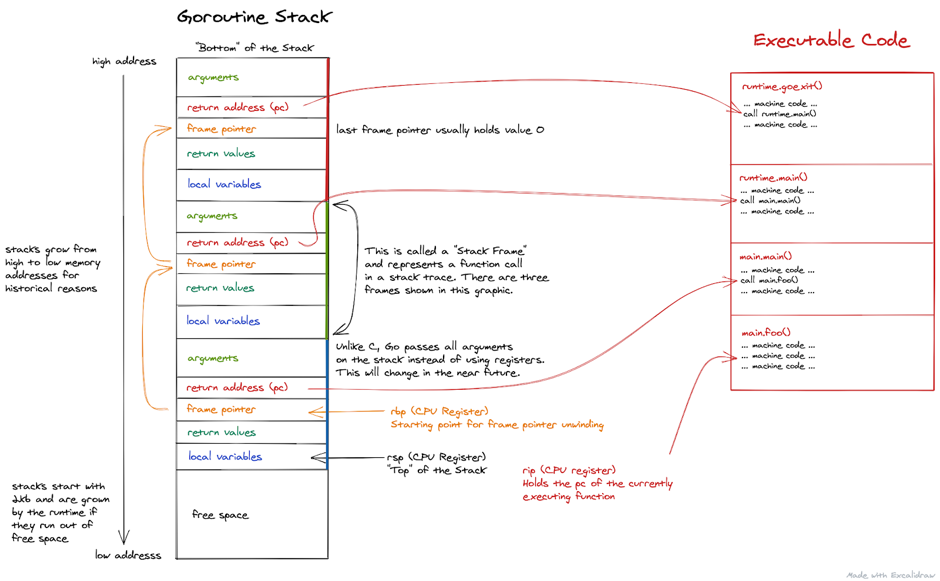 Goroutine Stack
"Bottom" of the Stack
high address
arguments
return address (pc)
frame pointer
last frame pointer usually holds value 0
return values
local variables
arguments
return address (pc)
frame pointer
return values
local variables
arguments
return address (pc)
frame pointer
return values
local variables
free space
stacks grow from
high to low memory
addresses for
historical reasons
stacks start with
2kb and are grown
by the runtime if
they run out of
free space
low addresss
This is called a "Stack Frame"
and represents a function call
in a stack trace. There are three
frames shown in this graphic.
Unlike C, Go passes all arguments
on the stack instead of using registers.
This will change in the near future.
rbp (CPU Register)
Starting point for frame pointer unwinding
rsp (CPU Register)
"Top" of the Stack
Executable Code
runtime.goexit()
... machine code ...
call runtime.main()
... machine code ...
runtime.main()
... machine code ...
call main.main()
... machine code ...
main.main()
... machine code ...
call main.foo()
... machine code ...
main.foo()
... machine code ...
... machine code ...
... machine code ...
rip (CPU register)
Holds the pc of the currently
executing function
Made with Excalidraw